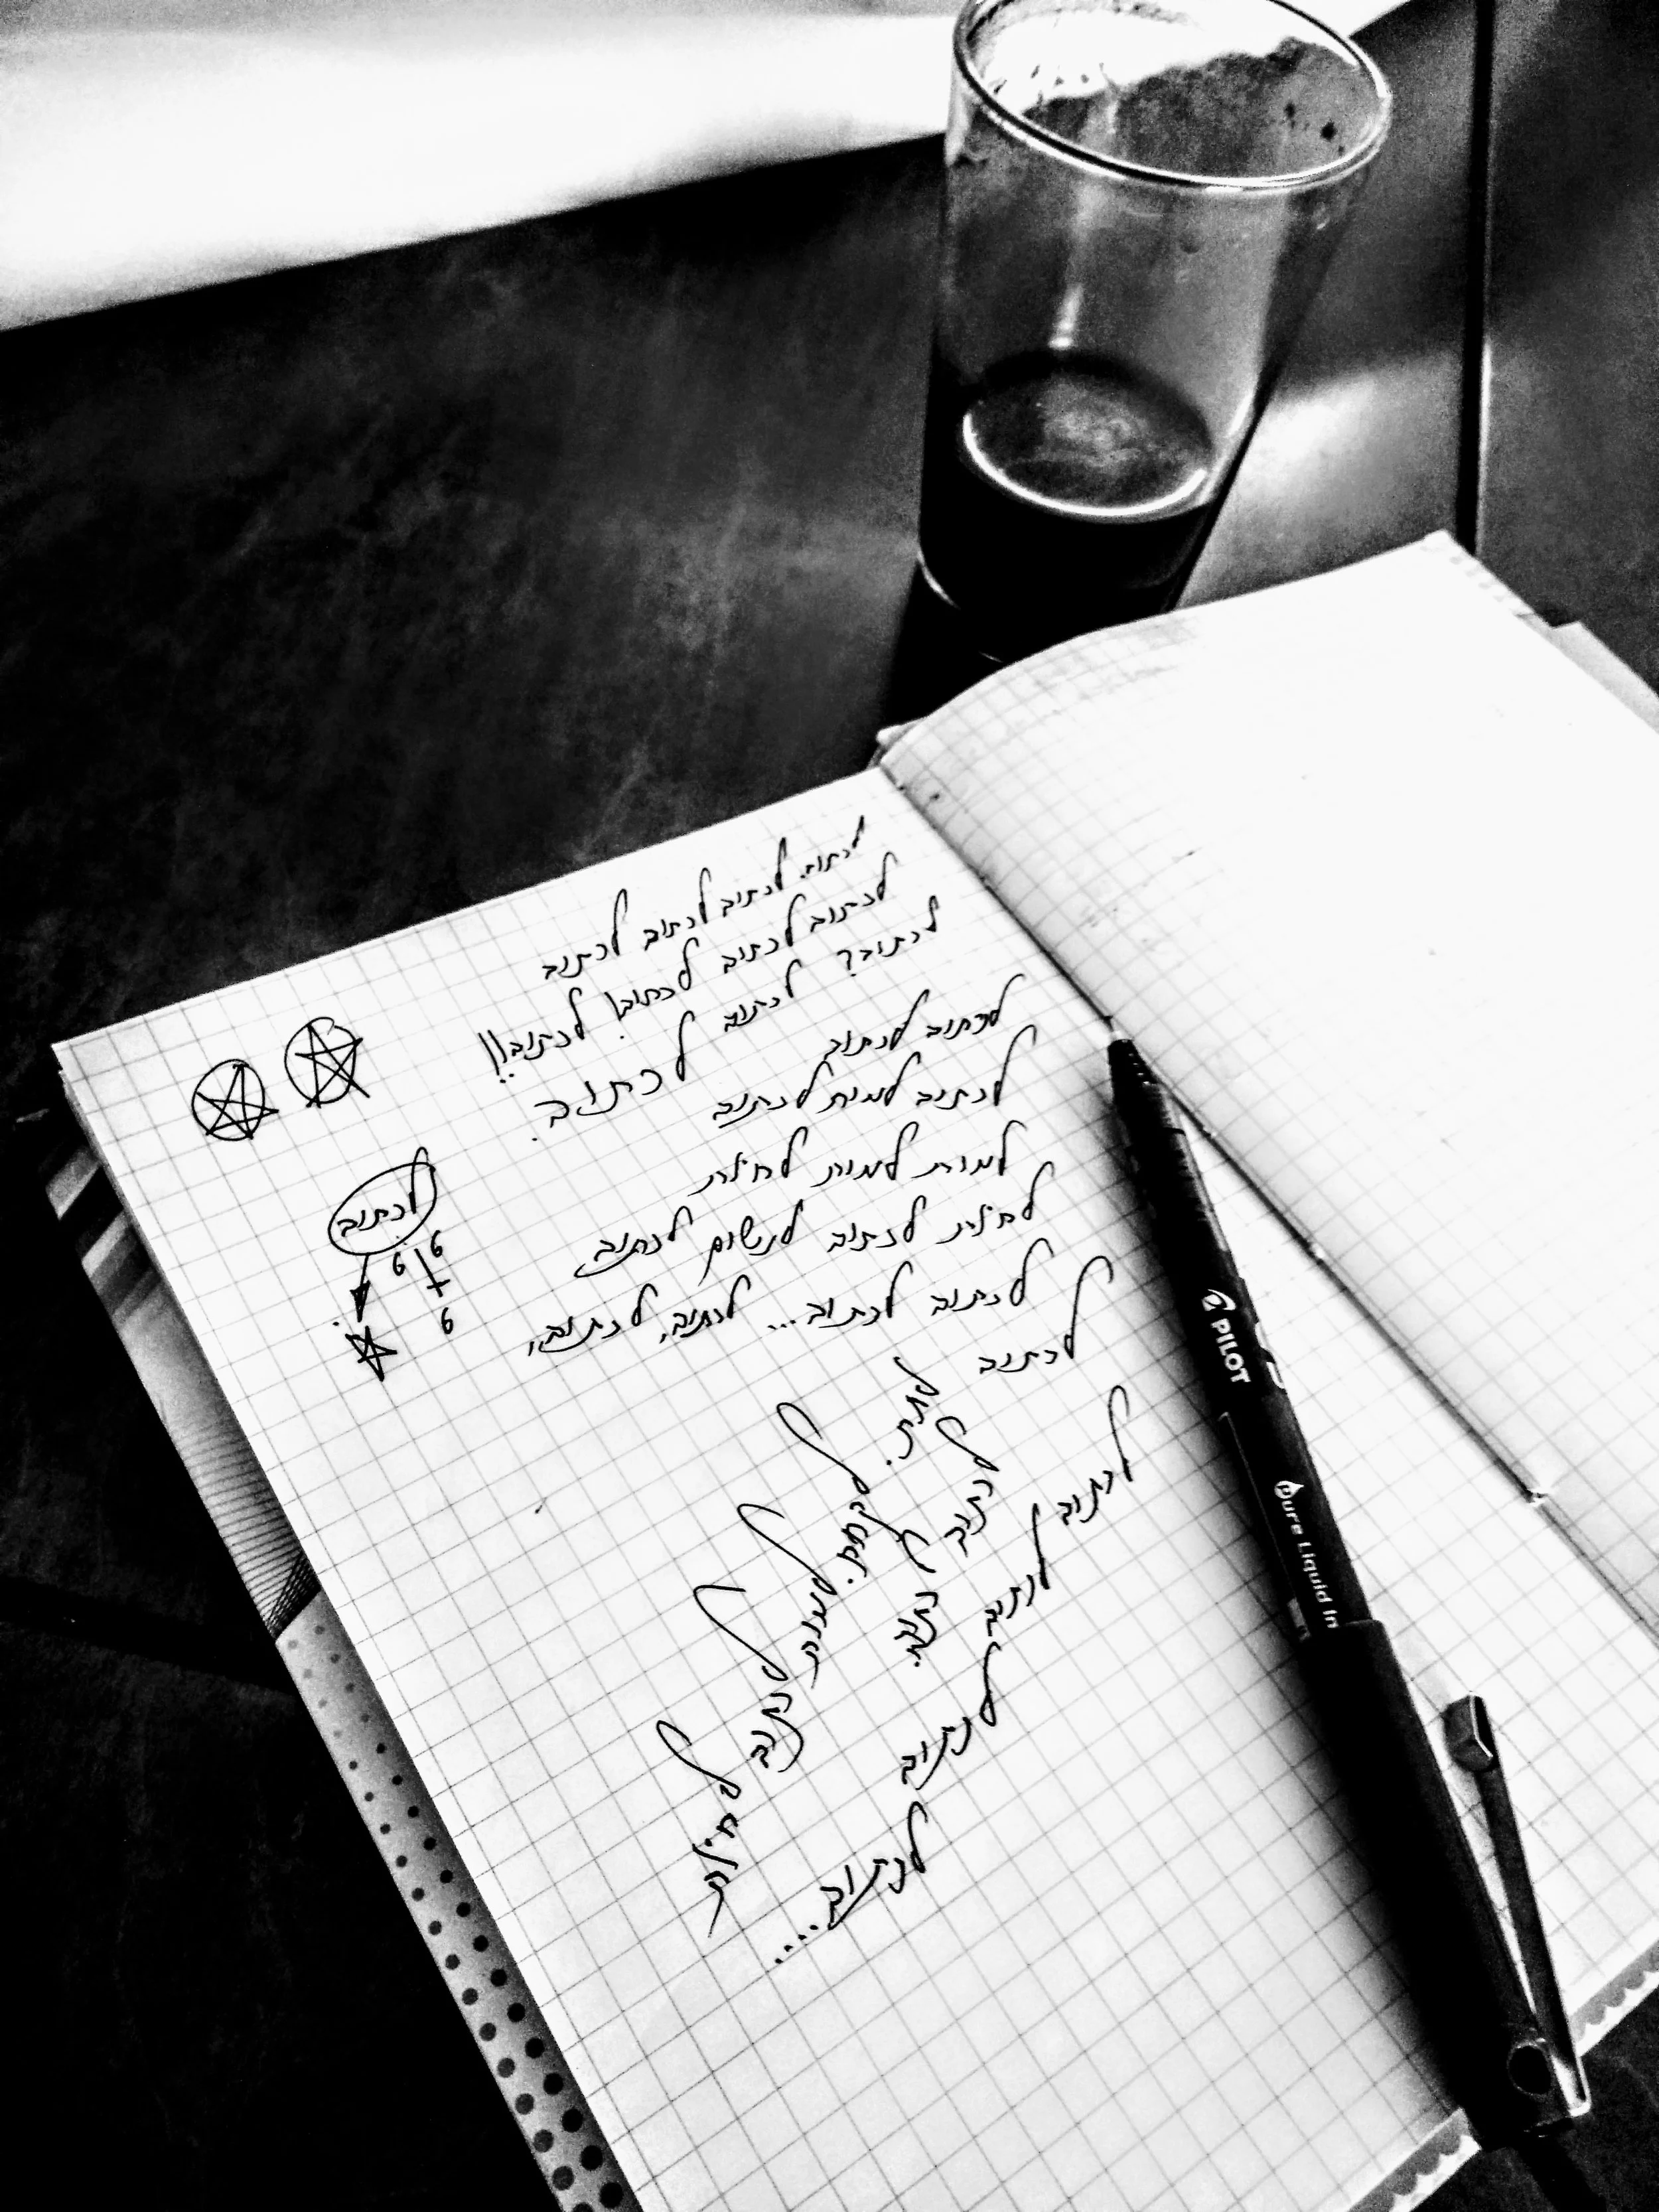 לכתוב. לכתוב לכתוב לכתוב
לכתוב לכתוב לכתוב! לכתוב!!
לכתוב? לכתוב לכתוב.
לכתוב לכתוב
לכתוב למות לכתוב
למות למות לחיות
לחיות לכתוב לנשום לכתוב
לכתוב לכתוב... לכתוב, לכתוב,
לכתוב לתת.
לכתוב לכתוב.
לכתוב לכתוב לכתוב לכתוב....
לקחת. למות
לכתוב
לחיות
לכתוב
6 6
6
PILOT
Pure Liquid In